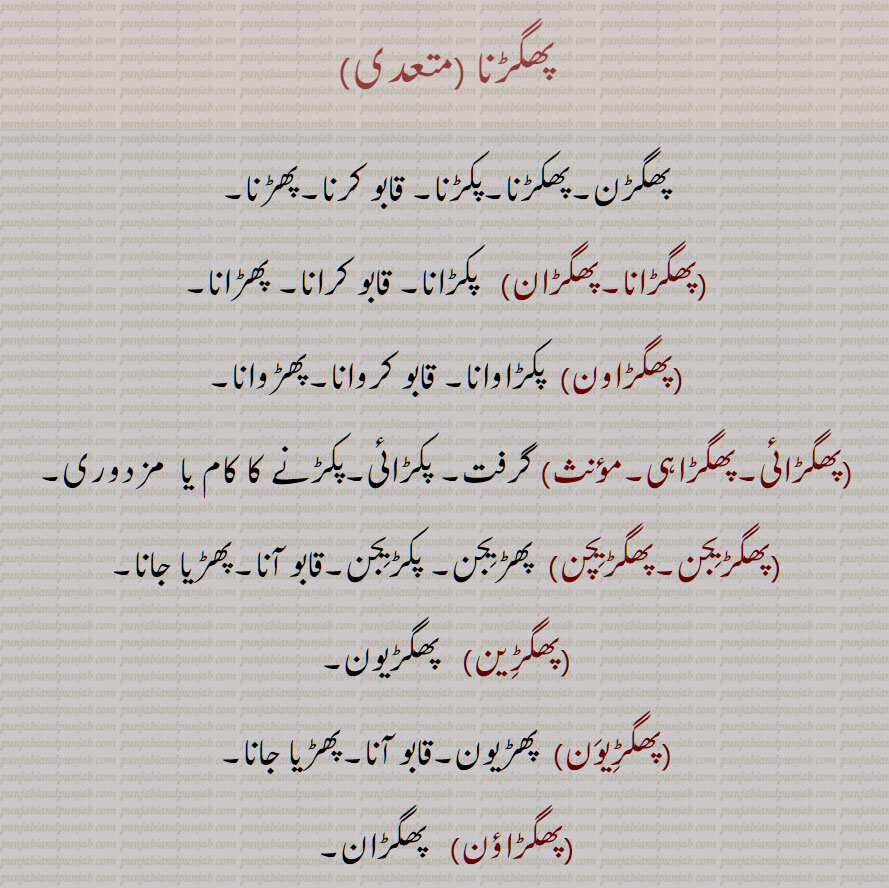 پھگڑنا (متعدی)
پھگڑن۔پھکڑنا۔پکڑنا۔ قابو کرنا۔پھڑنا۔
(پھگڑانا۔پھگڑان) پکڑانا۔ قابو کرانا۔ پھڑانا۔
(پھگڑاون) پکڑاوانا۔ قابو کروانا۔پھڑوانا۔
(پھگڑائی۔پھگڑاہی۔مؤنث) گرفت۔ پکڑائی۔پکڑنے کا کام یا مزدوری۔
(پھگڑیِجن۔پھگڑیِچن) پھڑیِجن۔ پکڑیِجن۔قابو آنا۔پھڑیا جانا۔
(پھگڑِین) پھگڑیون۔
(پھگڑِیوَن) پھڑیون۔قابو آنا۔پھڑیا جانا۔
(پھگڑاؤن) پھگڑان۔
punjabiandpunjab.com